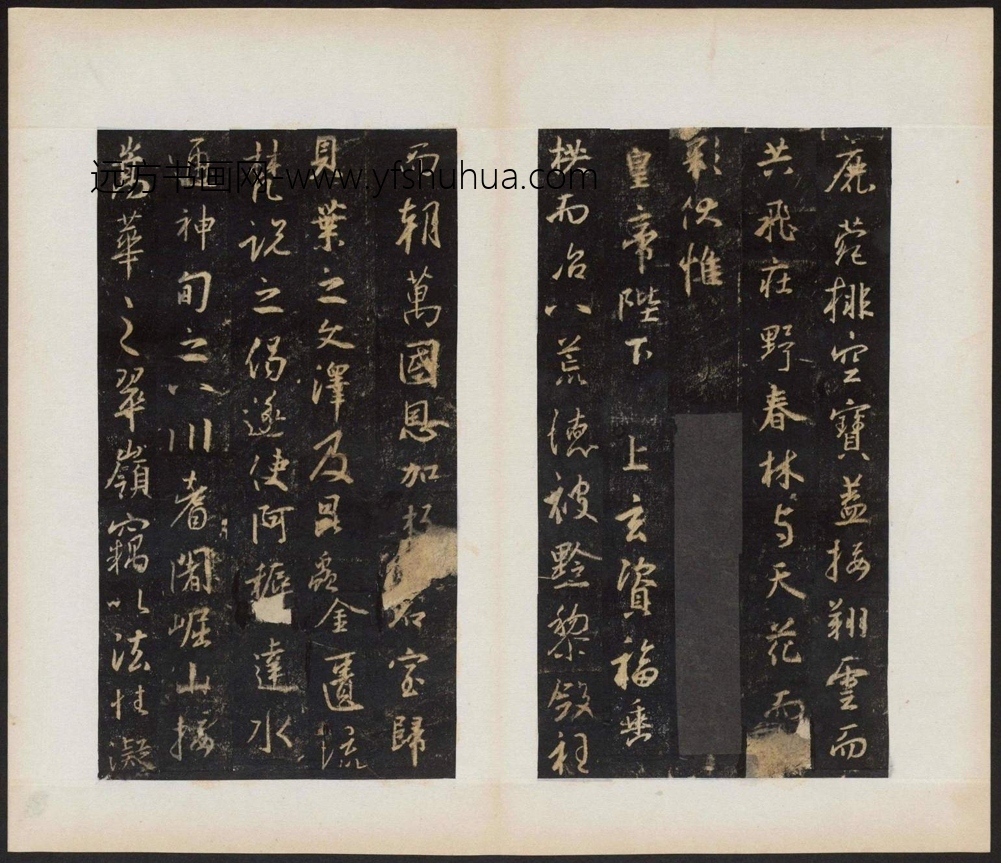 鹿菀排空寶蓋接翔雲而
共飛莊野春林与天花而
彩伏惟
皇帝陛下 上玄資福垂
拱而治八荒德被黔黎斂衽
而朝萬國恩加朽石室歸
貝葉之文澤及昆蟲金匱流
梵說之偈遂使阿耨達水
通神甸之八川耆闍崛山接
嵩華之翠嶺竊以法性凝
远方书画网-www.yfshuhua.com